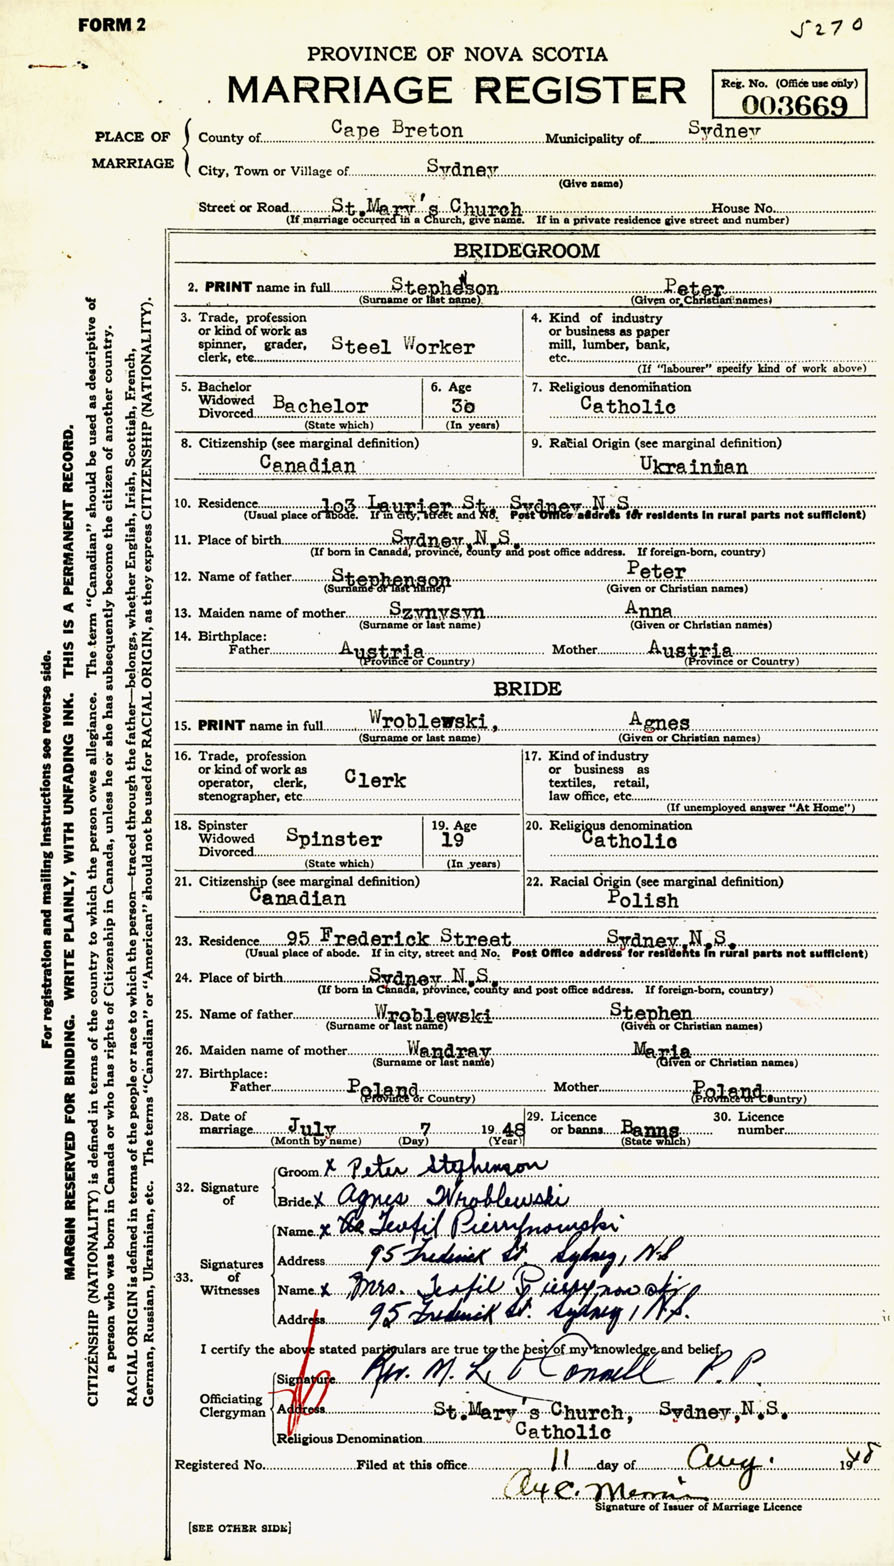 FORM 2
5270
PROVINCE OF NOVA SCOTIA
MARRIAGE REGISTER
Reg. No. (Office use only)
003669
PLACE OF MARRIAGE
County of Cape Breton Municipality of Sydney
City, Town or Village of Sydney
(Give name)
Street or Road St.Mary's Church House No.
(If marriage occurred in a Church, give name. If in a private residence give street and number)
BRIDEGROOM
2. PRINT name in full Stephenson Peter
(Surname or last name) (Given or Christian names)
3. Trade, profession or kind of work as spinner, grader, clerk, etc. Steel Worker
4. Kind of industry or business as paper mill, lumber, bank, etc.
(If "labourer" specify kind of work above)
5. Bachelor Widowed Divorced Bachelor
(State which)
6. Age 30
(In years)
7. Religious denomination
Catholic
8. Citizenship (see marginal definition)
Canadian
9. Racial Origin (see marginal definition)
Ukrainian
10. Residence 103 Laurier St. Sydney N.S.
(Usual place of abode. If in city, street and No. Post Office address for residents in rural parts not sufficient)
11. Place of birth Sydney N.S.
(If born in Canada, province, county and post office address. If foreign-born, country)
12. Name of father Stephenson Peter
(Surname or last name) (Given or Christian names)
13. Maiden name of mother Szynysyn Anna
(Surname or last name) (Given or Christian names)
14. Birthplace:
Father Austria Mother Austria
(Province or Country) (Province or Country)
BRIDE
15. PRINT name in full Wroblewski, Agnes
(Surname or last name) (Given or Christian names)
16. Trade, profession or kind of work as operator, clerk, stenographer, etc. Clerk
17. Kind of industry or business as textiles, retail, law office, etc.
(If unemployed answer "At Home")
18. Spinster Widowed Divorced Spinster
(State which)
19. Age
19
(In years)
20. Religious denomination
Catholic
21. Citizenship (see marginal definition)
Canadian
22. Racial Origin (see marginal definition)
Polish
23. Residence 95 Frederick Street Sydney,N.S.
(Usual place of abode. If in city, street and No. Post Office address for residents in rural parts not sufficient)
24. Place of birth Sydney N.S.
(If born in Canada, province, county and post office address. If foreign-born, country)
25. Name of father Wroblewski Stephen
(Surname or last name) (Given or Christian names)
26. Maiden name of mother Wandray Maria
(Surname or last name) (Given or Christian names)
27. Birthplace:
Father Poland Mother Poland.
(Province or Country) (Province or Country)
28. Date of marriage July 7 1948
(Month by name) (Day) (Year)
29. Licence or banns Banns
(State which)
30. Licence number
32. Signature of
Groom x Peter Stephenson
Bride x Agnes Wroblewski
33. Signatures of Witnesses
Name x Teofil Pierzynowski
Address 95 Frederick St. Sydney, N.S
Name x Mrs. Teofil Pierzynowski
Address 95 Frederick St. Sydney, N.S.
I certify the above stated particulars are true to the best of my knowledge and belief.
Officiating Clergyman
Signature Rev. M. L. O'Connell P.P.
Address St.Mary's Church, Sydney,N.S.
Religious Denomination Catholic
Registered No. Filed at this office 11 day of Aug. 1948
Signature of Issuer of Marriage Licence
[SEE OTHER SIDE]
For registration and mailing instructions see reverse side.
MARGIN RESERVED FOR BINDING. WRITE PLAINLY, WITH UNFADING INK. THIS IS A PERMANENT RECORD.
CITIZENSHIP (NATIONALITY) is defined in terms of the country to which the person owes allegiance. The term "Canadian" should be used as descriptive of
a person who was born in Canada or who has rights of Citizenship in Canada, unless he or she has subsequently become the citizen of another country.
RACIAL ORIGIN is defined in terms of the people or race to which the person—traced through the father—belongs, whether English, Irish, Scottish, French,
German, Russian, Ukrainian, etc. The terms "Canadian" or "American" should not be used for RACIAL ORIGIN, as they express CITIZENSHIP (NATIONALITY).